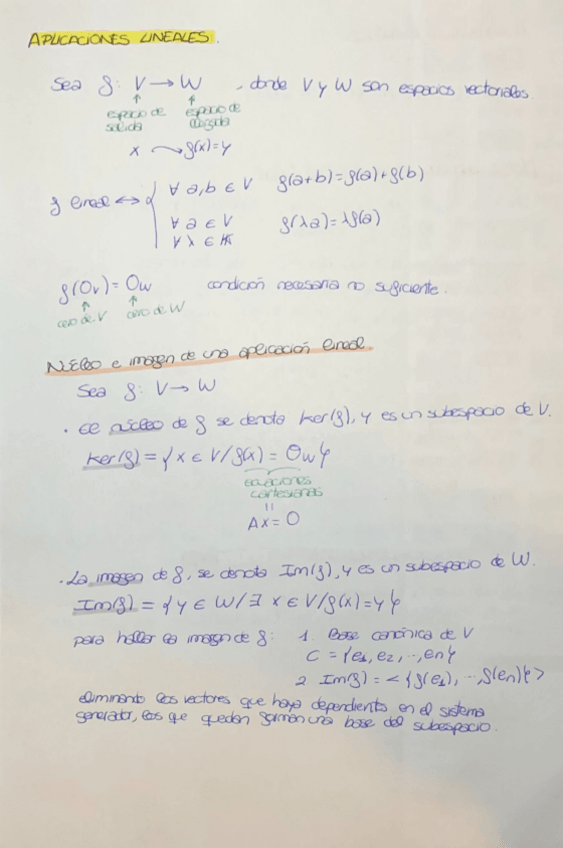 APLICACIONES LINEALES.
Sea f: V → W, donde V y W son espacios vectoriales.
↑ ↑
espacio de salida espacio de llegada
x ⟿ f(x)=y
f lineal ↔ { ∀ a,b ∈ V f(a+b)=f(a)+f(b)
∀ a ∈ V
∀ λ ∈ K f(λa)=λf(a)
f(0v)=0w condición necesaria no suficiente.
↑ ↑
cero de V cero de W
Núcleo e imagen de una aplicación lineal
Sea f: V → W
. el núcleo de f se denota ker(f), y es un subespacio de V.
Ker(f) = {x ∈ V / f(x) = 0w}
ecuaciones
cartesianas
=
Ax = 0
. La imagen de f, se denota Im(f), y es un subespacio de W.
Im(f) = {y ∈ W / ∃ x ∈ V / f(x)=y}
para hallar la imagen de f: 1. Base canónica de V
C = {e1, e2, .., en}
2. Im(f) = <{f(e1), .., f(en)}>
eliminando los vectores que haya dependiento en el sistema
generador, los que quedan forman una base del subespacio.